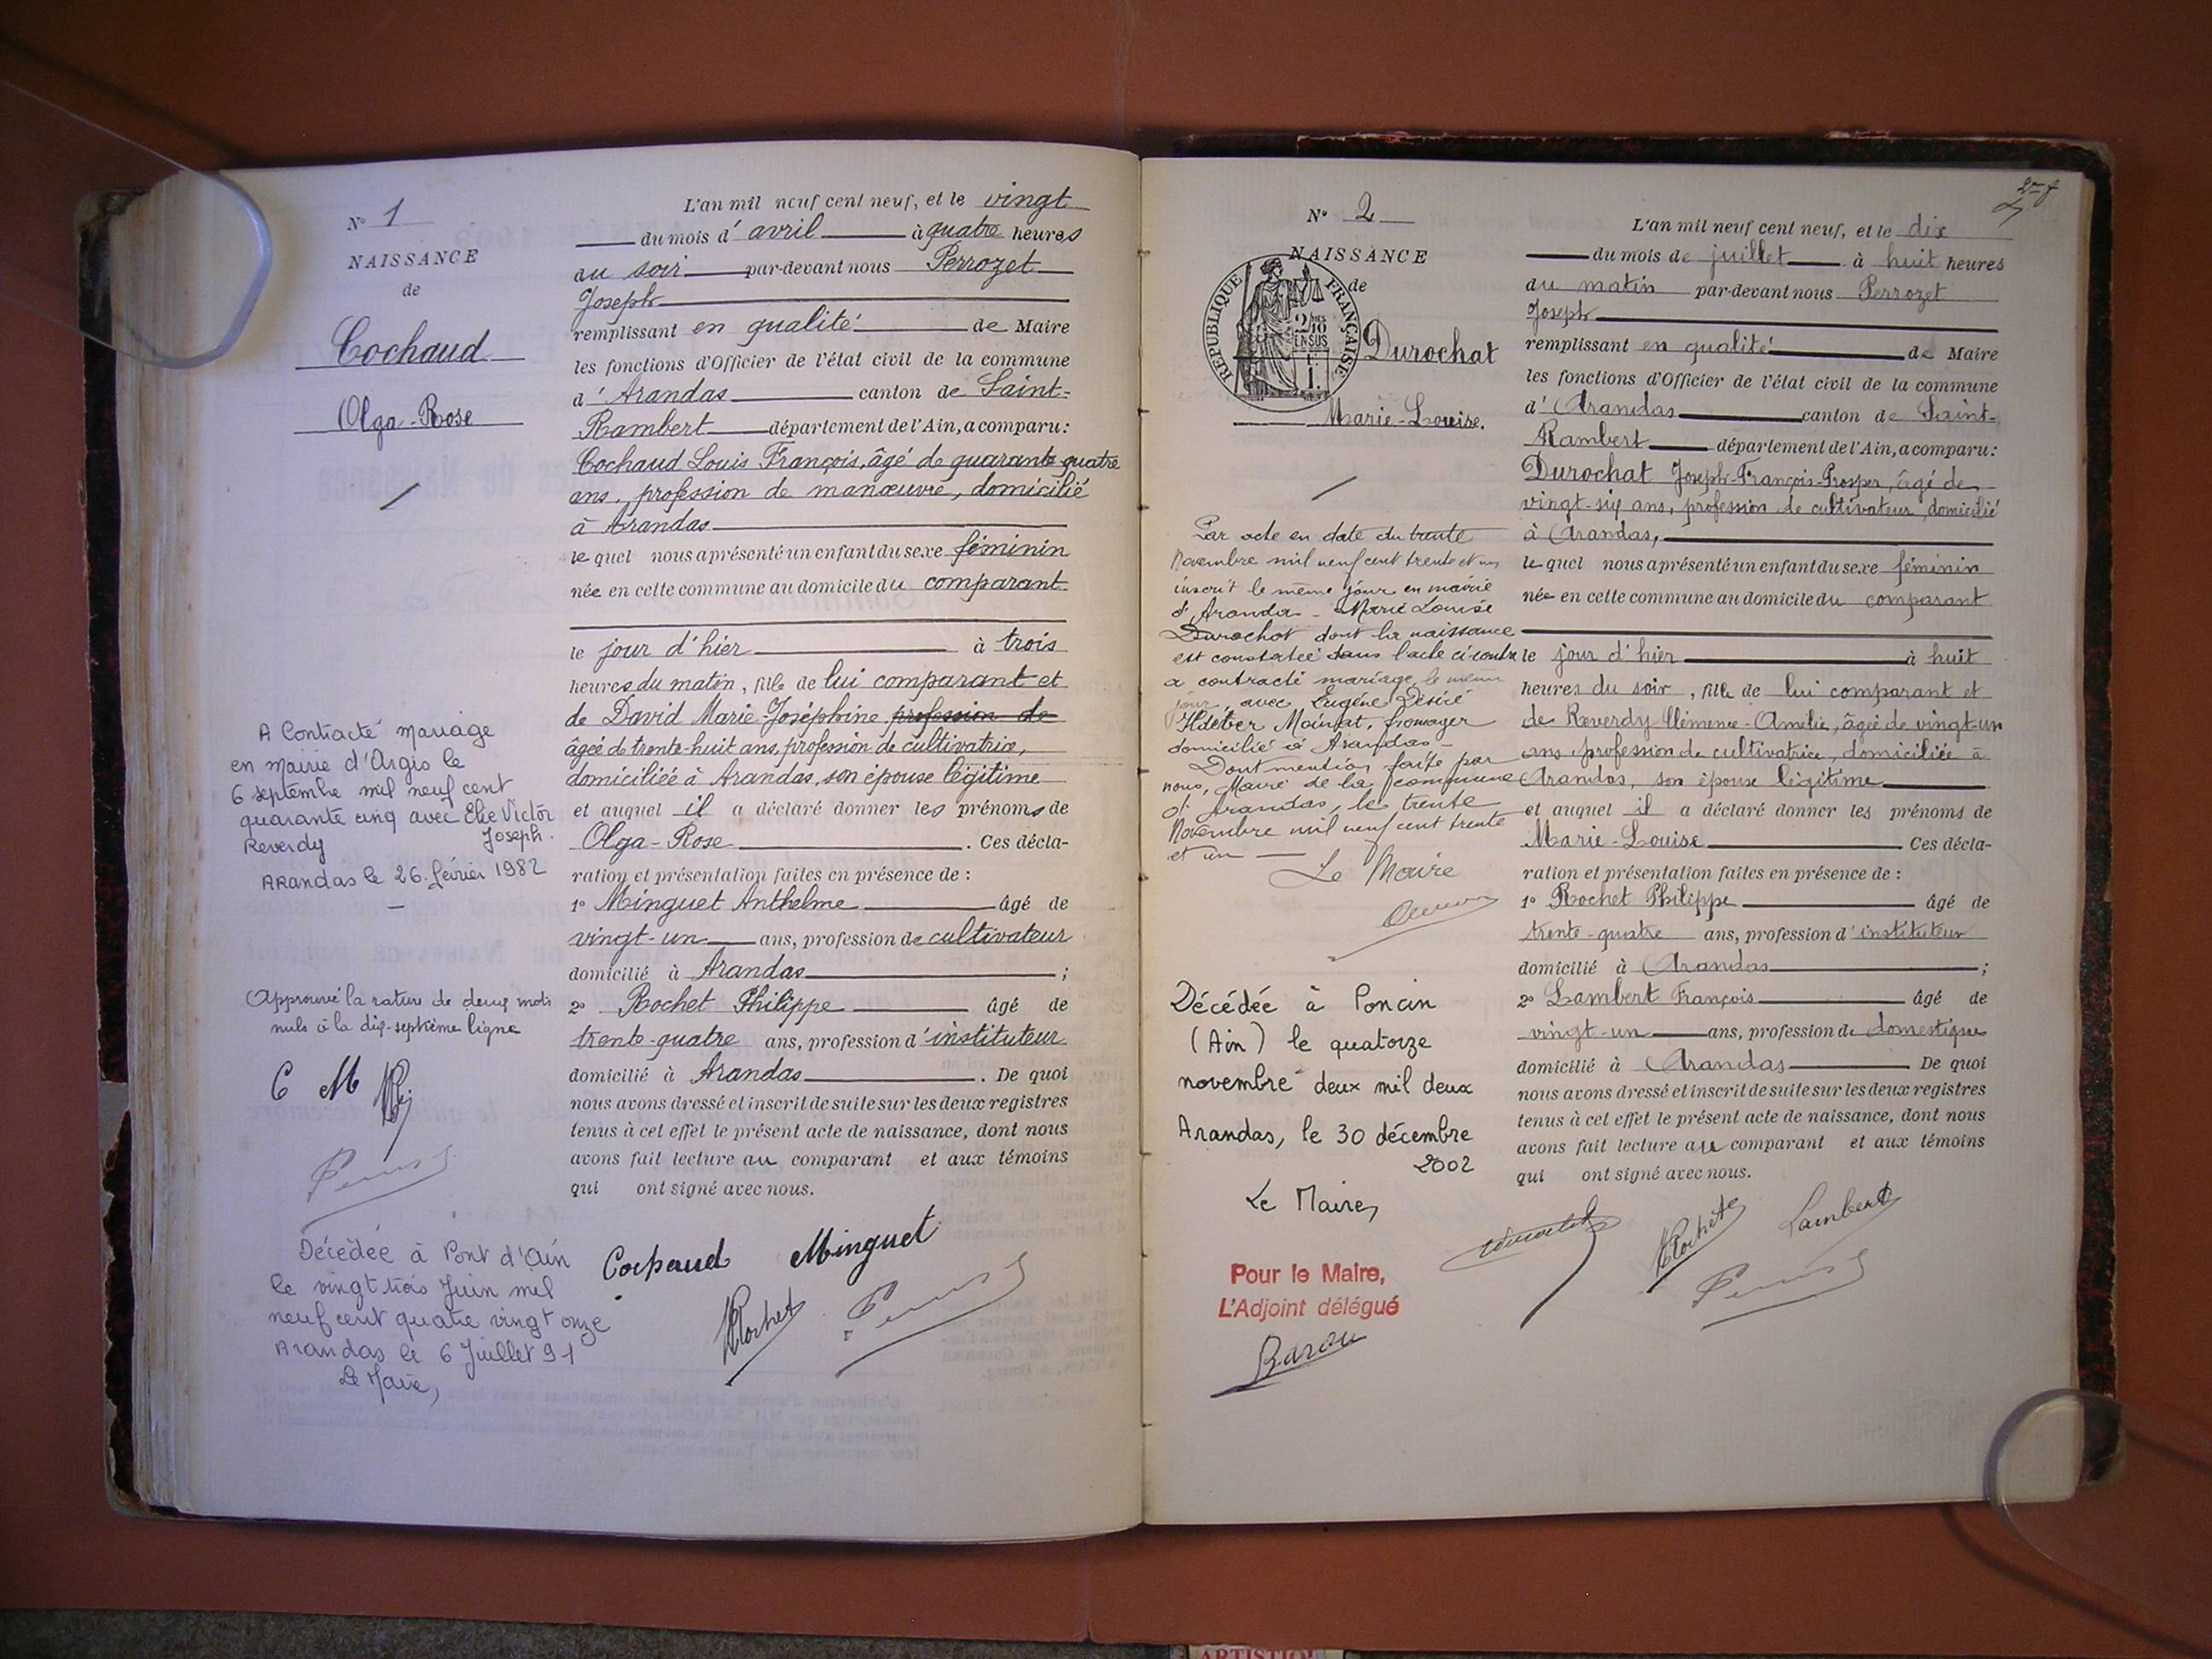 N° 1
NAISSANCE
de
Cochaud
Olga-Rose
A Contracté mariage
en mairie d'Argis le
6 septembre mil neuf cent
quarante cinq avec Elie Victor
Reverdy Joseph.
Arandas le 26 février 1982
Approuvé la rature de deux mots
nuls à la dix-septième ligne
C M
Décédée à Pont d'Ain
le vingt trois Juin mil
neuf cent quatre vingt onze
Arandas le 6 Juillet 91
Le Maire,
L'an mil neuf cent neuf, et le vingt
du mois d'avril à quatre heures
du soir par-devant nous Perrozet
Joseph
remplissant en qualité de Maire
les fonctions d'Officier de l'état civil de la commune
d'Arandas canton de Saint-
Rambert département de l'Ain, a comparu:
Cochaud Louis François, âgé de quarante quatre
ans, profession de manœuvre, domicilié
à Arandas
lequel nous a présenté un enfant du sexe féminin
née en cette commune au domicile du comparant
le jour d'hier à trois
heures du matin, fille de lui comparant et
de David Marie-Joséphine profession de
âgée de trente-huit ans, profession de cultivatrice,
domiciliée à Arandas, son épouse légitime
et auquel il a déclaré donner les prénoms de
Olga-Rose. Ces décla-
ration et présentation faites en présence de :
1° Minguet Anthelme âgé de
vingt-un ans, profession de cultivateur
domicilié à Arandas ;
2° Rochet Philippe âgé de
trente-quatre ans, profession d'instituteur
domicilié à Arandas. De quoi
nous avons dressé et inscrit de suite sur les deux registres
tenus à cet effet le présent acte de naissance, dont nous
avons fait lecture au comparant et aux témoins
qui ont signé avec nous.
Cochaud Minguet
Rochet
N° 2
NAISSANCE
de
REPUBLIQUE FRANÇAISE
2/10
EN SUS
Durochat
Marie-Louise.
Par acte en date du trente
Novembre mil neuf cent trente et un
inscrit le même jour en mairie
d'Arandas - Marie Louise
Durochat dont la naissance
est constatée dans l'acte ci-contre
a contracté mariage le même
jour, avec Eugène Désiré
Kléber fromager
domicilié à Arandas -
Dont mention faite par
nous, Maire de la commune
d'Arandas, le trente
Novembre mil neuf cent trente
et un
Le Maire
Décédée à Poncin
(Ain) le quatorze
novembre deux mil deux
Arandas, le 30 décembre
2002
Le Maire,
Pour le Maire,
L'Adjoint délégué
L'an mil neuf cent neuf, et le dix
du mois de juillet à huit heures
du matin par-devant nous Perrozet
Joseph
remplissant en qualité de Maire
les fonctions d'Officier de l'état civil de la commune
d'Arandas canton de Saint-
Rambert département de l'Ain, a comparu:
Durochat Joseph-François-Prosper, âgé de
vingt-six ans, profession de cultivateur, domicilié
à Arandas,
lequel nous a présenté un enfant du sexe féminin
née en cette commune au domicile du comparant
le jour d'hier à huit
heures du soir, fille de lui comparant et
de Reverdy Clémence-Amélie, âgée de vingt-un
ans, profession de cultivatrice, domiciliée à
Arandas, son épouse légitime
et auquel il a déclaré donner les prénoms de
Marie-Louise Ces décla-
ration et présentation faites en présence de :
1° Rochet Philippe âgé de
trente-quatre ans, profession d'instituteur
domicilié à Arandas ;
2° Lambert François âgé de
vingt-un ans, profession de domestique
domicilié à Arandas De quoi
nous avons dressé et inscrit de suite sur les deux registres
tenus à cet effet le présent acte de naissance, dont nous
avons fait lecture au comparant et aux témoins
qui ont signé avec nous.
Rochet Lambert